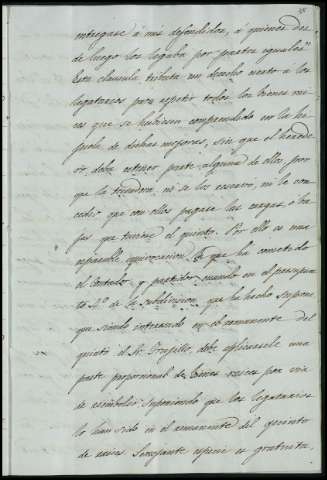 entregase á mis defendidos, á quienes des
de luego los legaba por partes iguales.
Esta clausula tributa un derecho neto á los
legatarios para repetir todos los bienes rai
ces que se hubiesen comprendido en la hi
juela de dichas mejoras, sin que el herede
ro, deba retener parte alguna de ellos, por
que la testadora, ni se los reservó, ni le con
cedió que con ellos pagase las cargas, ó ba
jas que tuviese el quinto. Por ello es una
reparable equivocacion la que ha cometido
el Contador y partidor cuando en el presupues
to 4º de la subdivision, que ha hecho supone
que siendo interesado en el remanente del
quinto el Sr. Trujillo, debe aplicarsele una
parte proporcional de bienes raices por via
de reembolso suponiendo que los legatarios
lo han sido en el remanente del quinto
de raices. Semejante especie es gratuita,